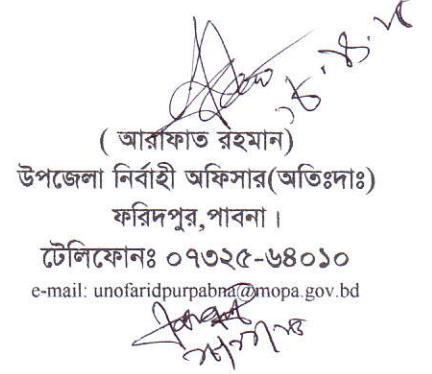 ( আরাফাত রহমান)
উপজেলা নির্বাহী অফিসার(অতিঃদাঃ)
ফরিদপুর,পাবনা ।
টেলিফোনঃ ০৭৩২৫-৬৪০১০
e-mail: unofaridpurpabna@mopa.gov.bd